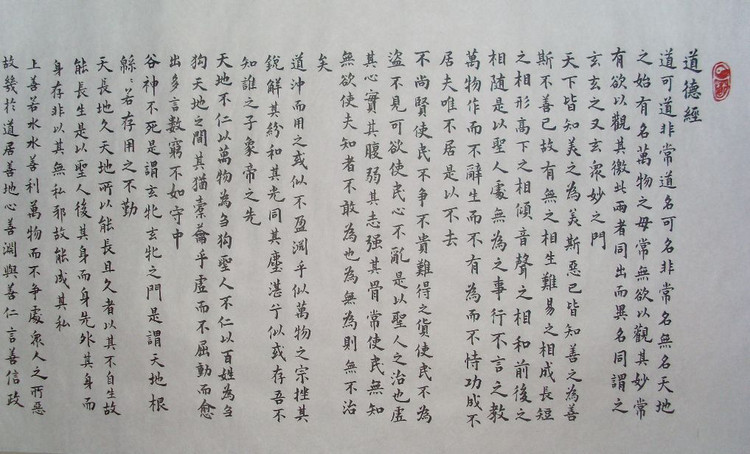 道德經
道可道非常道名可名非常名無名天地
之始有名萬物之母常無欲以觀其妙常
有欲以觀其徼此兩者同出而異名同謂之
玄玄之又玄衆妙之門
天下皆知美之為美斯惡已皆知善之為善
斯不善已故有無之相生難易之相成長短
之相形高下之相傾音聲之相和前後之
相隨是以聖人處無為之事行不言之教
萬物作而不辭生而不有為而不恃功成不
居夫唯不居是以不去
不尚賢使民不爭不貴難得之貨使民不為
盜不見可欲使民心不亂是以聖人之治也虛
其心實其腹弱其志强其骨常使民無知
無欲使夫知者不敢為也為無為則無不治
矣
道沖而用之或似不盈淵乎似萬物之宗挫其
銳解其紛和其光同其塵湛兮似或存吾不
知誰之子象帝之先
天地不仁以萬物為芻狗聖人不仁以百姓為芻
狗天地之間其猶橐籥乎虛而不屈動而愈
出多言數窮不如守中
谷神不死是謂玄牝玄牝之門是謂天地根
緜〻若存用之不勤
天長地久天地所以能長且久者以其不自生故
能長生是以聖人後其身而身先外其身而
身存非以其無私邪故能成其私
上善若水水善利萬物而不爭處衆人之所惡
故幾於道居善地心善淵與善仁言善信政